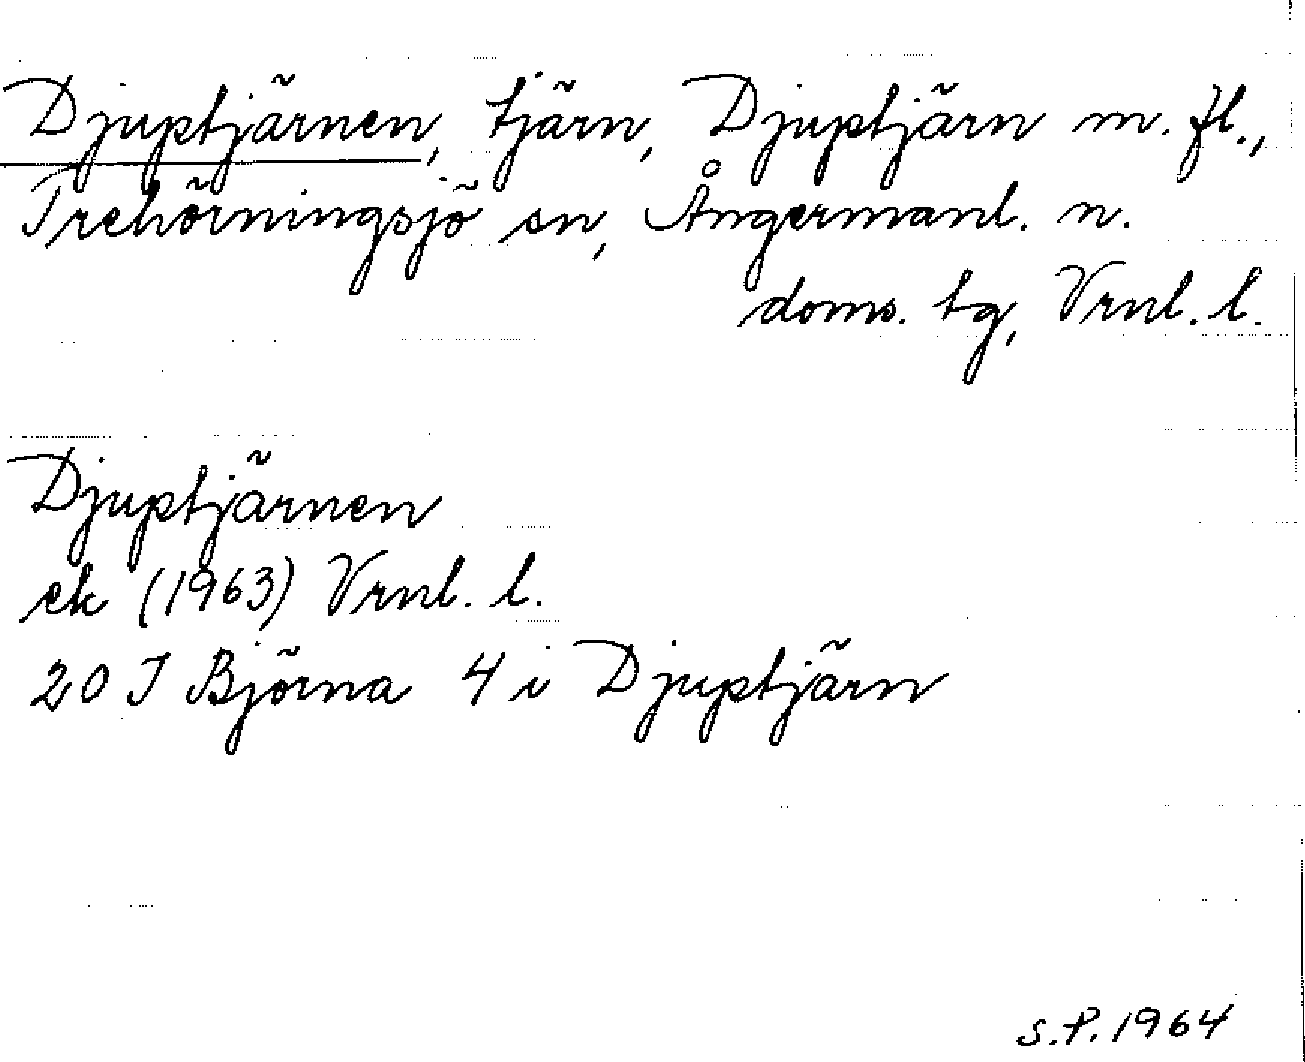 Djuptjärnen, tjärn, Djuptjärn m. fl.,
Trehörningsjö sn, Ångermanl. n.
doms. tg, Vrnl. l.
Djuptjärnen
ek (1963) Vrnl. l.
20 I Björna 4 i Djuptjärn
S.P. 1964